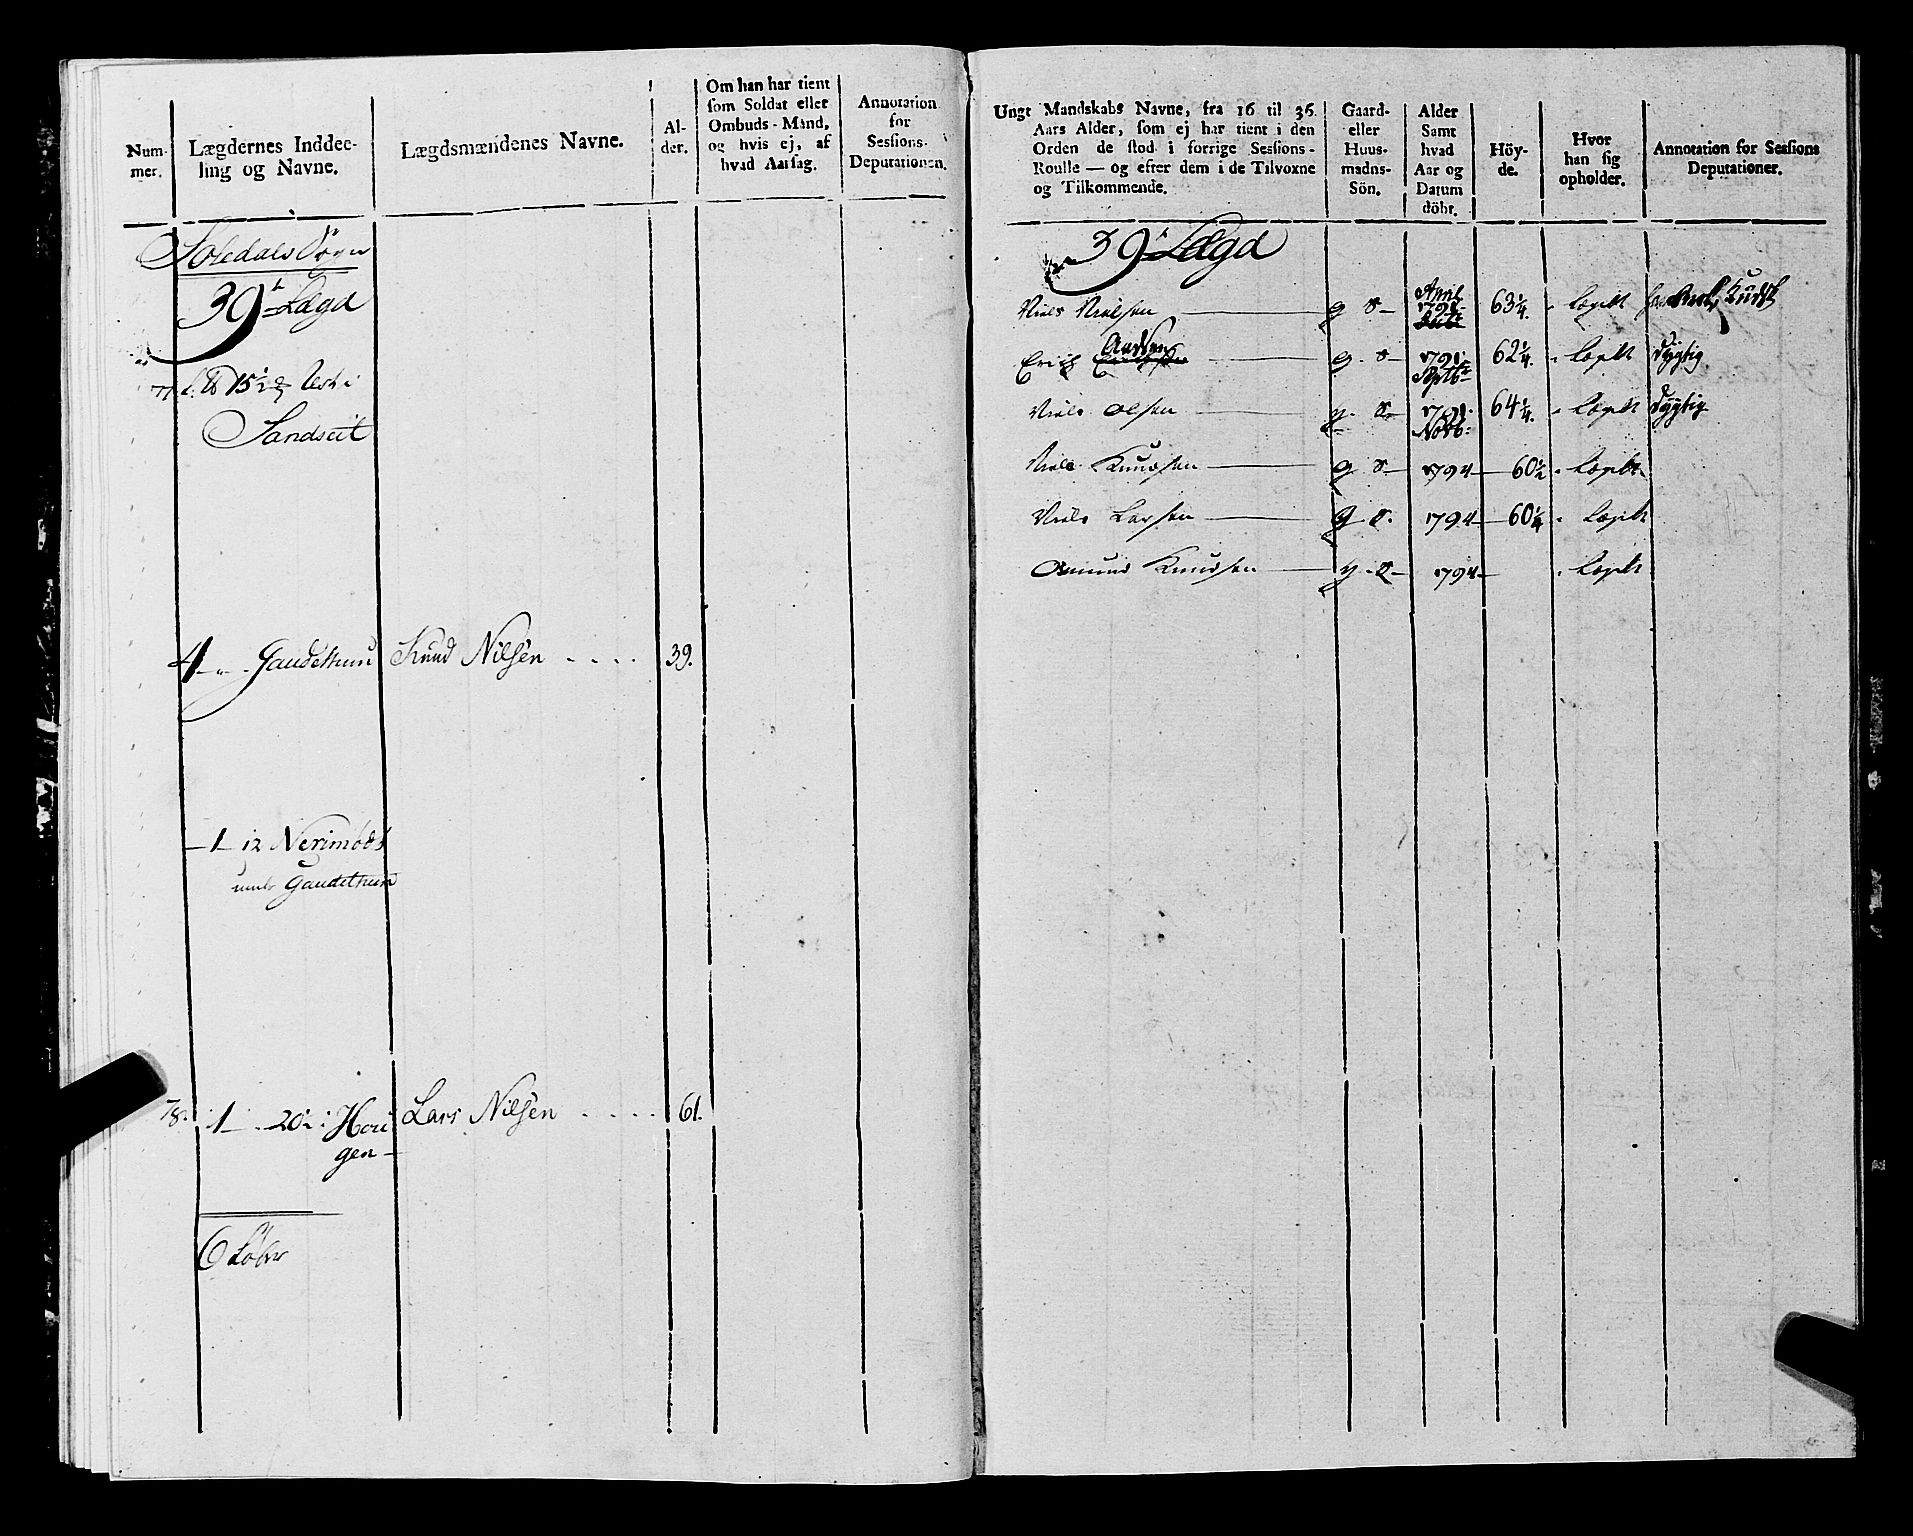 Num-
mer.
Lægdernes Inddee-
ling og Navne.
Lægdsmændenes Navne.
Al-
der.
Om han har tient
som Soldat eller
Ombuds-Mand,
og hvis ej, af
hvad Aarsag.
Annotation
for
Sessions-
Deputationen.
39te Lægd
Sandseit
4 Gaudethun Knud Nilsen 39.
1 12 Nerimods
Gaudethun
78. 1 20 i Hou
gen Lars Nilsen 61.
6 Løber
Ungt Mandskabs Navne, fra 16 til 36.
Aars Alder, som ej har tient i den
Orden de stod i forrige Sessions-
Roulle — og efter dem i de Tilvoxne
og Tilkommende.
Gaard-
eller
Huus-
madns-
Sön.
Alder
Samt
hvad
Aar og
Datum
döbt.
Höy-
de.
Hvor
han sig
opholder.
Annotation for Sessions
Deputationer.
39te Lægd
Niels Nielsen g s April 1791 63 1/4 Lægdet
Erich g s 1791 Septbr 62 1/4 Lægdt Dygtig
Niels Olsen g s 1791 Novb: 64 1/4 Lægdt Dygtig
Niels Knudsen g s 1794 60 1/2 Lægdt
Niels Larsen g s 1794 60 1/4 Lægdt
Amund Knudsen g s 1794 Lægdt